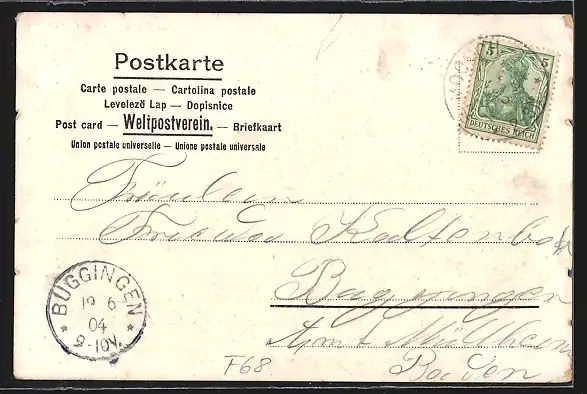 Postkarte
Carte postale — Cartolina postale
Levelező Lap — Dopisnice
Post card — Weltpostverein. — Briefkaart
Union postale universelle — Unione postale universale
5 5
DEUTSCHES REICH
Fräulein
Kaltenbach
Buggingen
Amt Müllheim
Baden
BUGGINGEN
19 6
04
9-10V.
F68